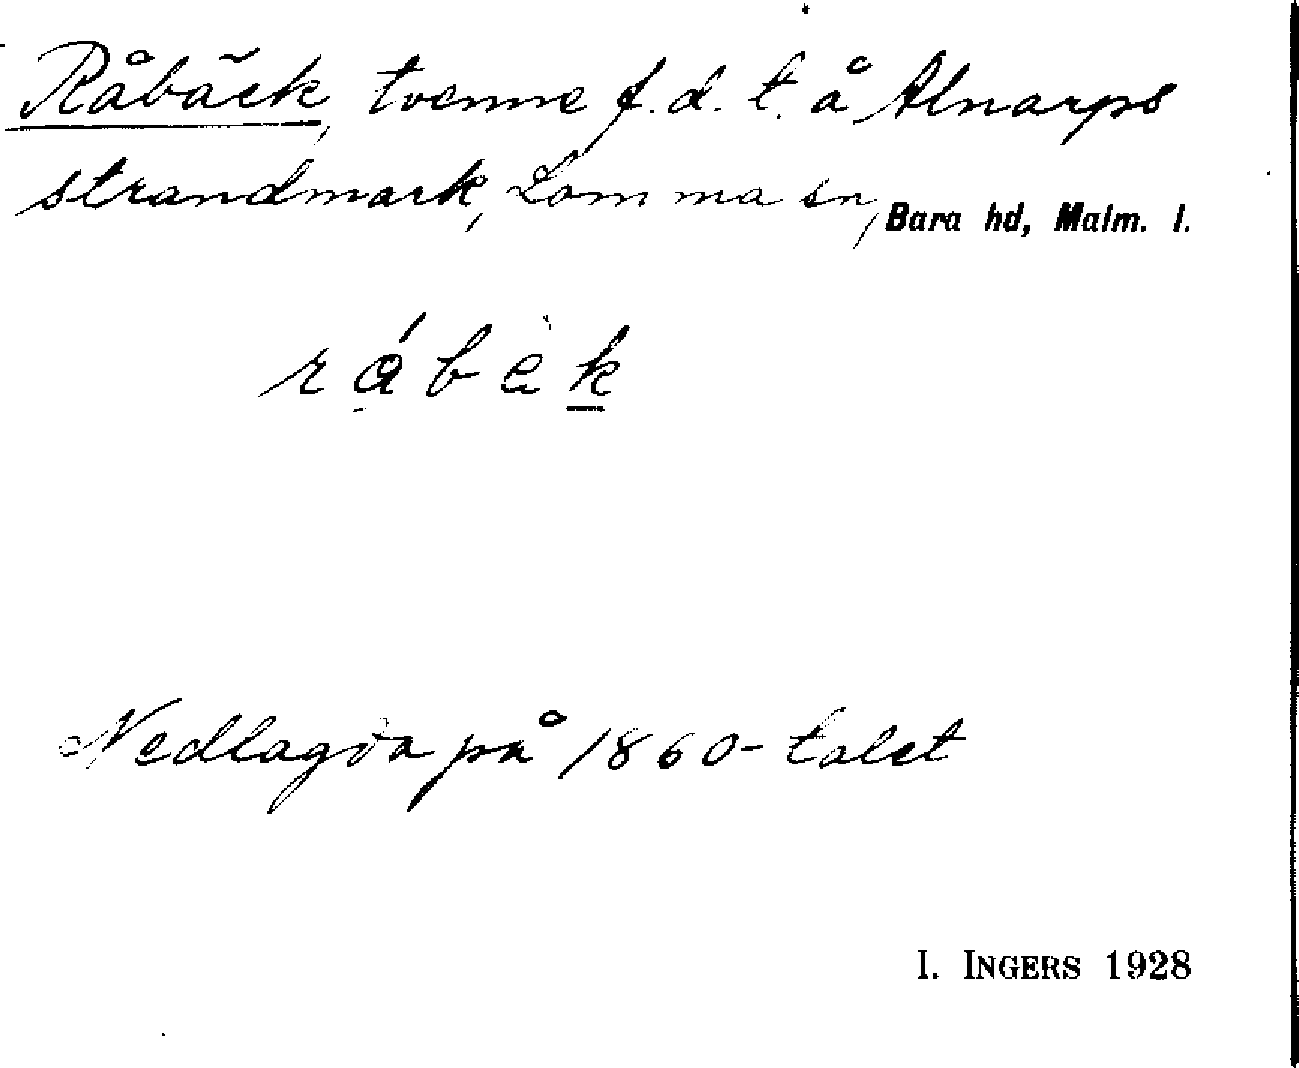 Råbäck, tvenne f.d. t. å Alnarps
strandmark, Lomma sn, Bara hd, Malm. l.
råbäk
Nedlagda på 1860-talet
I. INGERS 1928